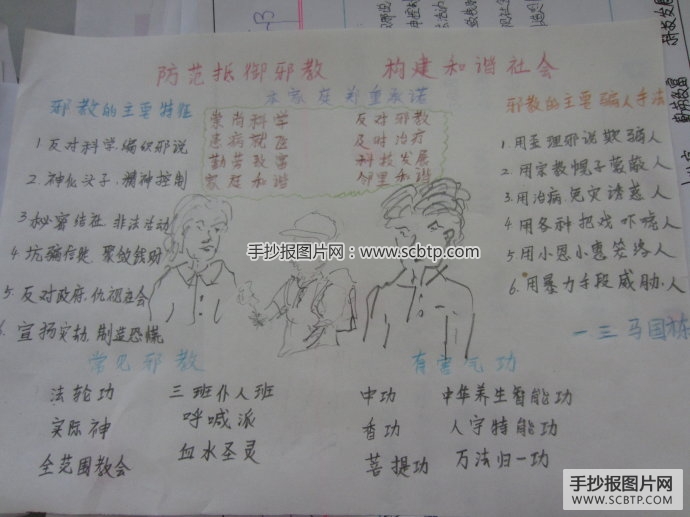 防范抵御邪教 构建和谐社会
本家庭郑重承诺
崇尚科学 反对邪教
患病就医 及时治疗
勤劳致富 科技发展
家庭和谐 邻里和谐
邪教的主要特征
1.反对科学.编织邪说
2.神化头子.精神控制
3.秘密结社.非法活动
4.坑骗信徒.聚敛钱财
5.反对政府.仇视社会
6.宣扬灾劫.制造恐慌
邪教的主要骗人手法
1.用歪理邪说欺骗人
2.用宗教幌子蒙蔽人
3.用治病免灾诱惑人
4.用各种把戏吓唬人
5.用小恩小惠笼络人
6.用暴力手段威胁人
一三马国栋
手抄报图片网：www.scbtp.com
常见邪教
法轮功 三班仆人班
实际神 呼喊派
全范围教会 血水圣灵
有害气功
中功 中华养生智能功
香功 人宇特能功
菩提功 万法归一功
手抄报图片网
WWW.SCBTP.COM